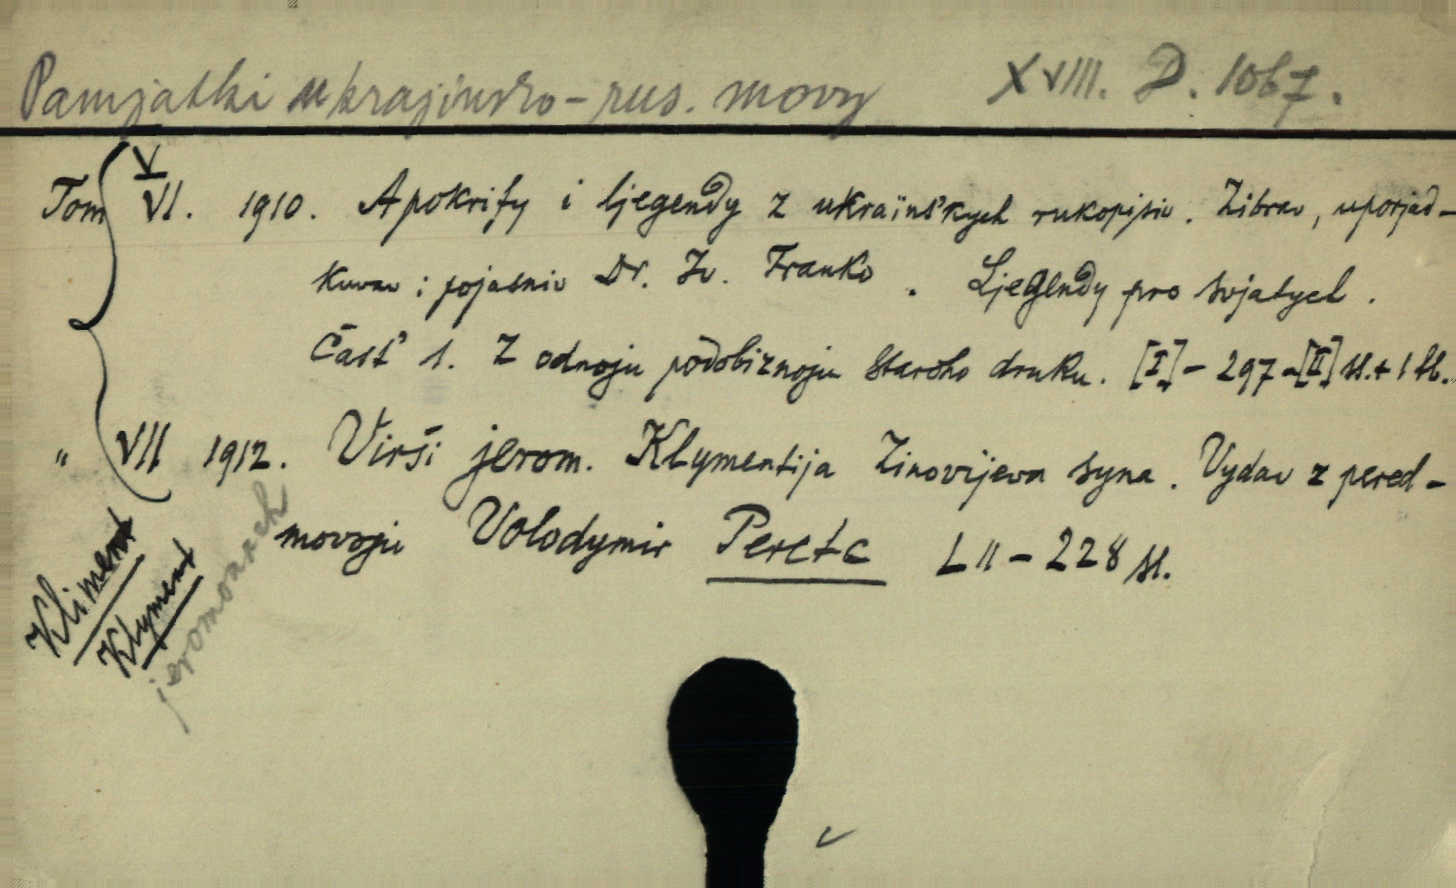 Pamjatki ukrajinsko-rus. movy XVIII. D. 1067.
V
Tom VI. 1910. Apokrify i ljegendy z ukraïns'kych rukopisiv. Zibrav, uporjad-
kuvav i pojasniv Dr. Iv. Franko. Ljegendy pro svjatych.
Častʹ 1. Z odnoju podobiznoju staroho druku. [I]-297-[II] st.+1 tl.
" VII 1912. Virši jerom. Klymentija Zinovijeva syna. Vydav z pered-
movoju Volodymir Peretc LII-228 st.
Kliment
Klyment
jeromonach